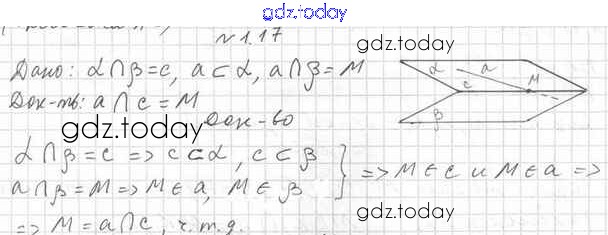 gdz.today
№1.17
gdz.today
Дано: α∩β=c, a⊂α, a∩β=M
Док-ть: a∩c=M
gdz.today
Док-во
α a c M β
α∩β=c => c⊂α, c⊂β
a∩β=M => M∈a, M∈β } => M∈c и M∈a =>
=> M=a∩c, ч.т.д.
gdz.today